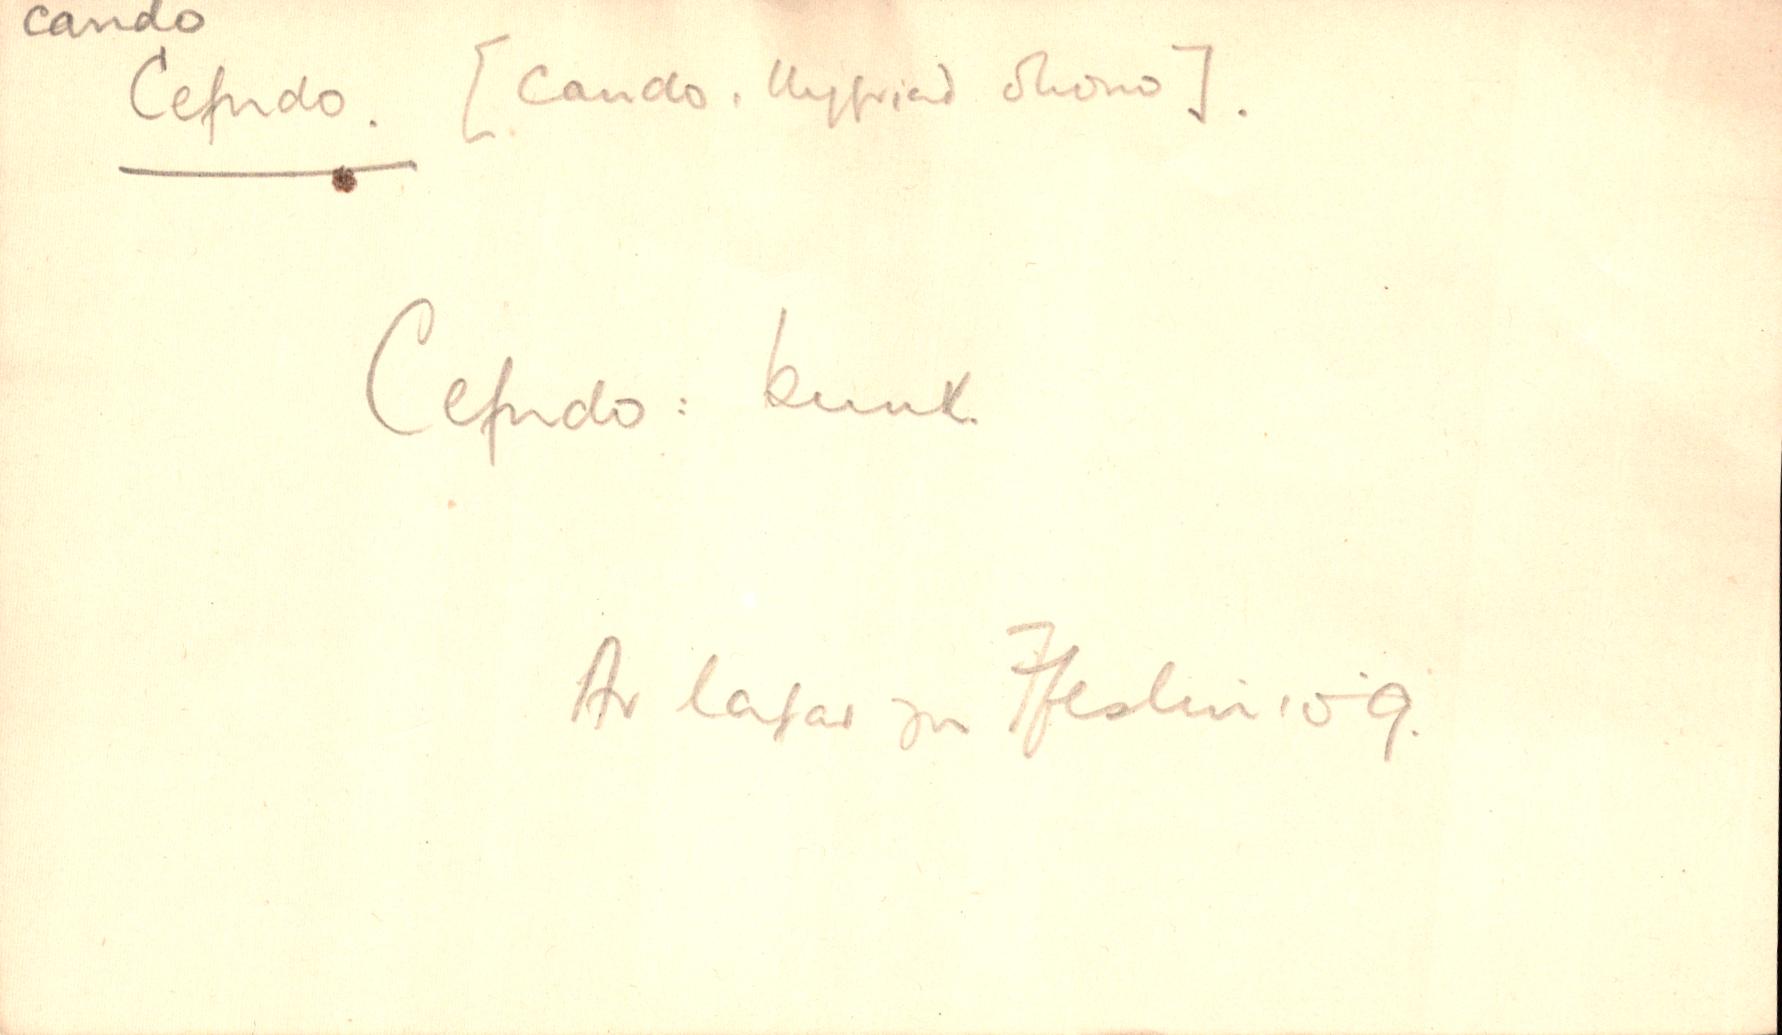 cando
Cefndo. [Cando. Llygriad ohono].
Cefndo: bunk.
Ar lafar yn Ffestiniog.